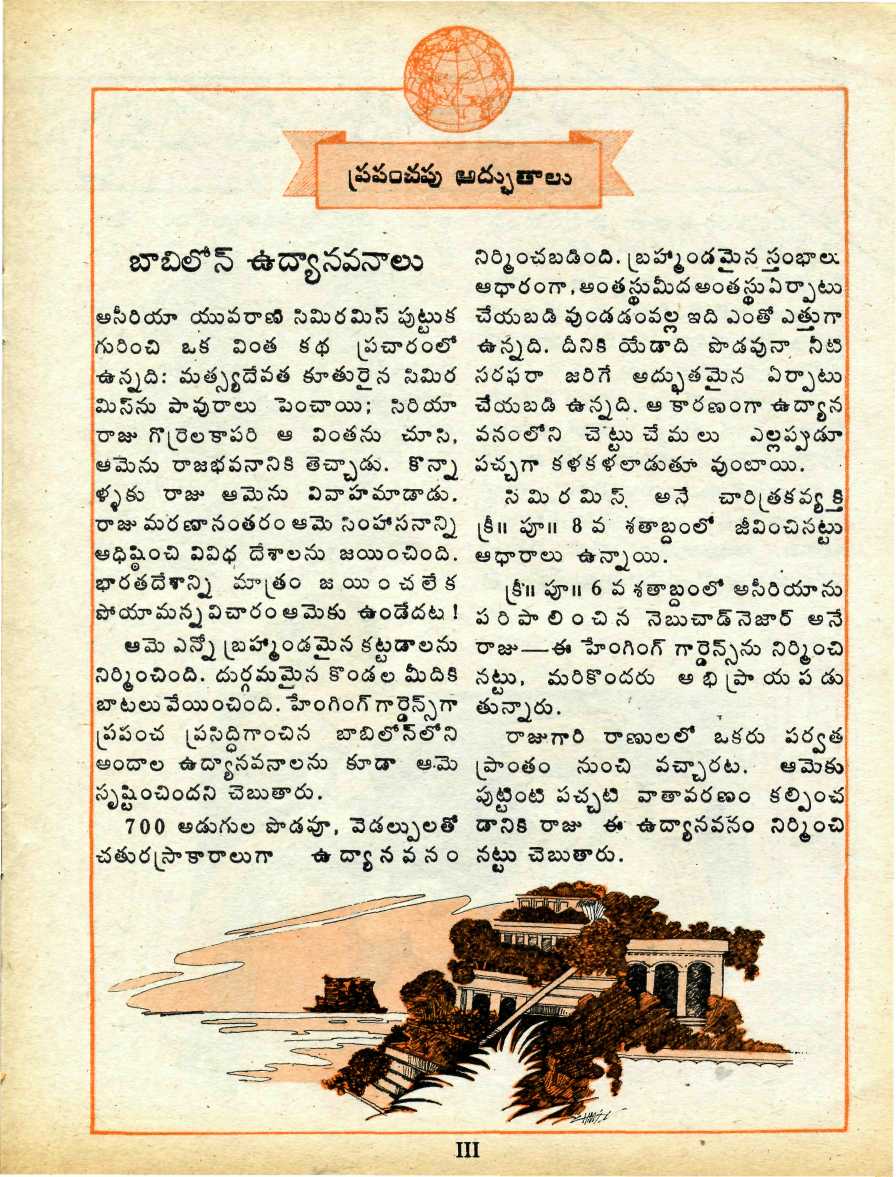 ప్రపంచపు అద్భుతాలు
బాబిలోన్ ఉద్యానవనాలు
అసీరియా యువరాణి సిమిరమిస్ పుట్టుక
గురించి ఒక వింత కథ ప్రచారంలో
ఉన్నది: మత్స్యదేవత కూతురైన సిమిర
మిస్‌ను పావురాలు పెంచాయి; సిరియా
రాజు గొర్రెలకాపరి ఆ వింతను చూసి,
ఆమెను రాజభవనానికి తెచ్చాడు. కొన్నా
ళ్ళకు రాజు ఆమెను వివాహమాడాడు.
రాజు మరణానంతరం ఆమె సింహాసనాన్ని
అధిష్ఠించి వివిధ దేశాలను జయించింది.
భారతదేశాన్ని మాత్రం జయించలేక
పోయామన్న విచారం ఆమెకు ఉండేదట!
ఆమె ఎన్నో బ్రహ్మాండమైన కట్టడాలను
నిర్మించింది. దుర్గమమైన కొండల మీదికి
బాటలు వేయించింది. హేంగింగ్ గార్డెన్స్‌గా
ప్రపంచ ప్రసిద్ధిగాంచిన బాబిలోన్‌లోని
అందాల ఉద్యానవనాలను కూడా ఆమె
సృష్టించిందని చెబుతారు.
700 అడుగుల పొడవూ, వెడల్పులతో
చతురస్రాకారాలుగా ఉద్యానవనం
నిర్మించబడింది. బ్రహ్మాండమైన స్తంభాలు
ఆధారంగా, అంతస్తుమీద అంతస్తు ఏర్పాటు
చేయబడి వుండడంవల్ల ఇది ఎంతో ఎత్తుగా
ఉన్నది. దీనికి యేడాది పొడవునా నీటి
సరఫరా జరిగే అద్భుతమైన ఏర్పాటు
చేయబడి ఉన్నది. ఆ కారణంగా ఉద్యాన
వనంలోని చెట్టు చేమలు ఎల్లప్పుడూ
పచ్చగా కళకళలాడుతూ వుంటాయి.
సిమిరమిస్ అనే చారిత్రకవ్యక్తి
క్రీ॥ పూ॥ 8 వ శతాబ్దంలో జీవించినట్టు
ఆధారాలు ఉన్నాయి.
క్రీ॥ పూ॥ 6 వ శతాబ్దంలో అసీరియాను
పరిపాలించిన నెబుచాడ్‌నెజార్ అనే
రాజు—ఈ హేంగింగ్ గార్డెన్స్‌ను నిర్మించి
నట్టు, మరికొందరు అభిప్రాయపడు
తున్నారు.
రాజుగారి రాణులలో ఒకరు పర్వత
ప్రాంతం నుంచి వచ్చారట. ఆమెకు
పుట్టింటి పచ్చటి వాతావరణం కల్పించ
డానికి రాజు ఈ ఉద్యానవనం నిర్మించి
నట్టు చెబుతారు.
III